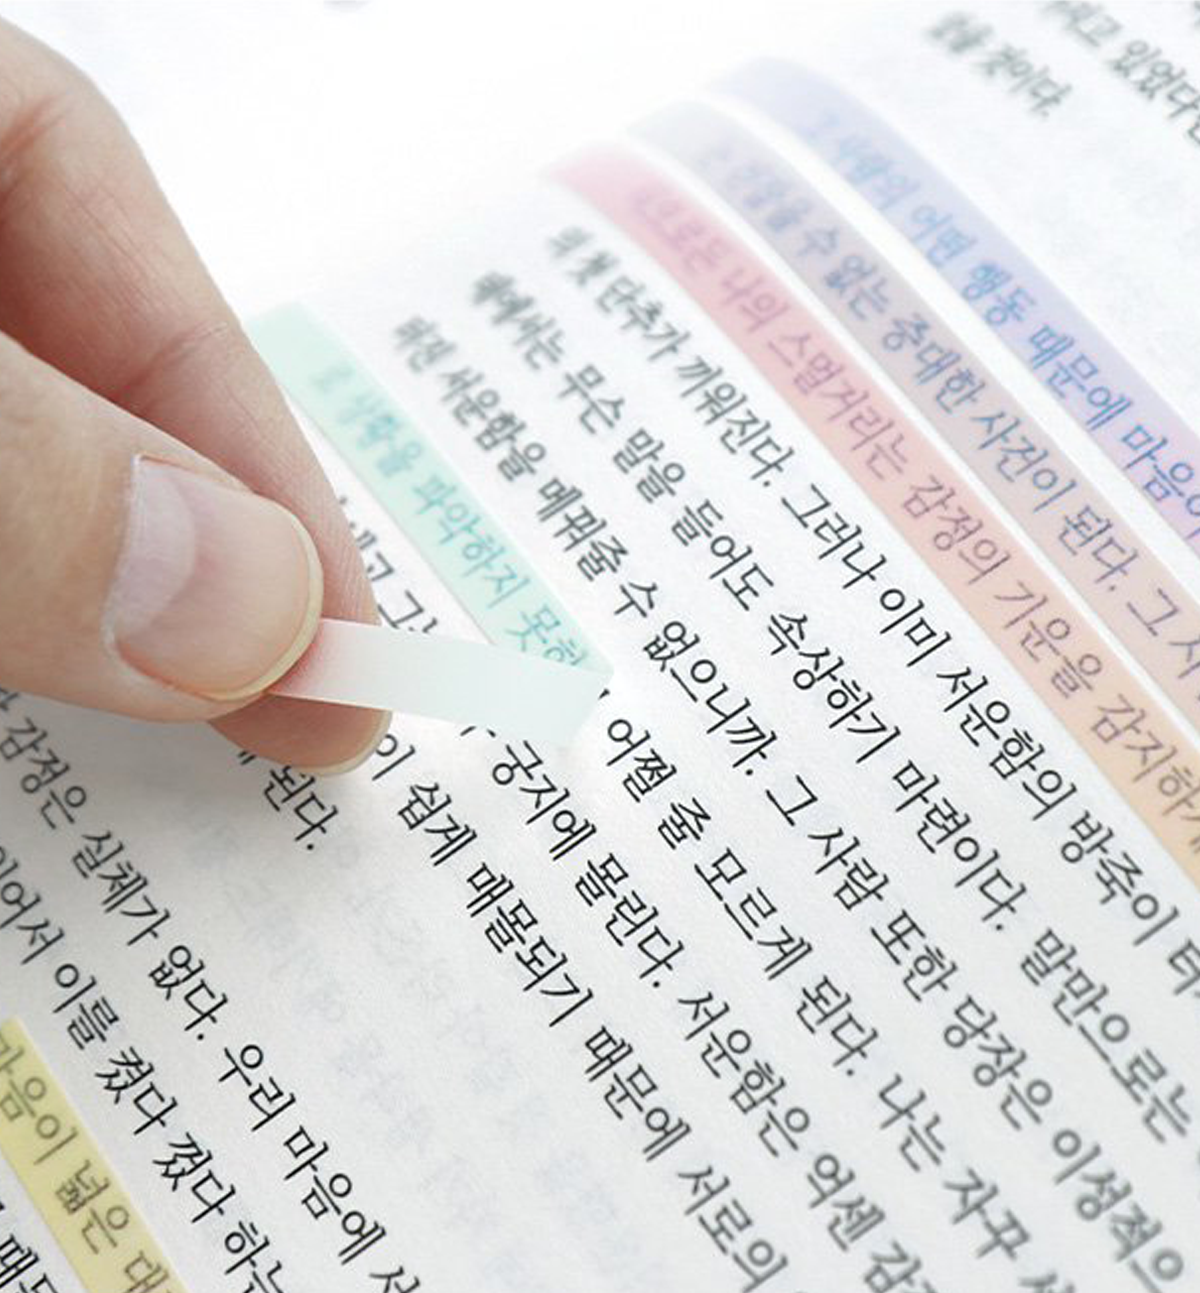 고 있었다
것이다.
사람의 어떤 행동 때문에 마음
수 없는 중대한 사건이 된다. 그 사
나의 스멀거리는 감정의 기운을 감지하
첫 단추가 끼워진다. 그러나 이미 서운함의 방죽이 터
에서는 무슨 말을 들어도 속상하기 마련이다. 말만으로는
서운함을 메꿔줄 수 없으니까. 그 사람 또한 당장은 이성적으
상황을 파악하지 못하 어쩔 줄 모르게 된다. 나는 자꾸
궁지에 몰린다. 서운함은 억센 감
이 쉽게 매몰되기 때문에 서로의
된다.
감정은 실체가 없다. 우리 마음에
있어서 이를 켰다 껐다 하는
마음이 넓은 대
때문